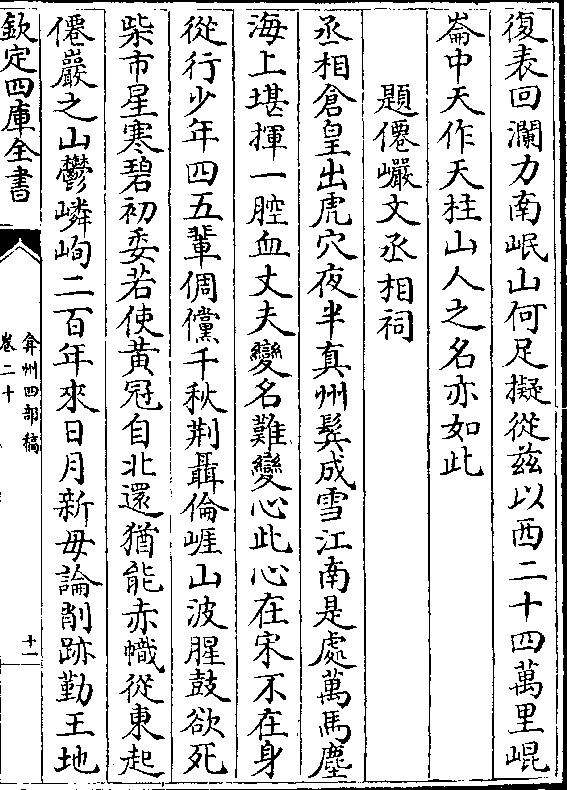 復表回瀾力南岷山何足擬從兹以西二十四萬里崐
崙中天作天柱山人之名亦如此
題僊巗文丞相祠
丞相倉皇出虎穴夜半真州鬂成雪江南是處萬馬塵
海上堪揮一腔血丈夫變名難變心此心在宋不在身
從行少年四五輩倜儻千秋荆聶倫崕山波腥鼓欲死
柴市星寒碧初委若使黄冠自北還猶能赤幟從東起
僊巖之山鬱嶙峋二百年來日月新毋論削跡勤王地
欽定四庫全書
弇州四部稿
卷二十
十一